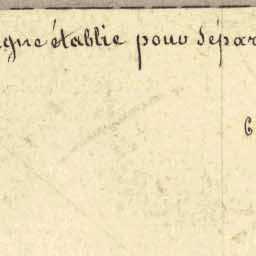 igne établie pour sépar
6